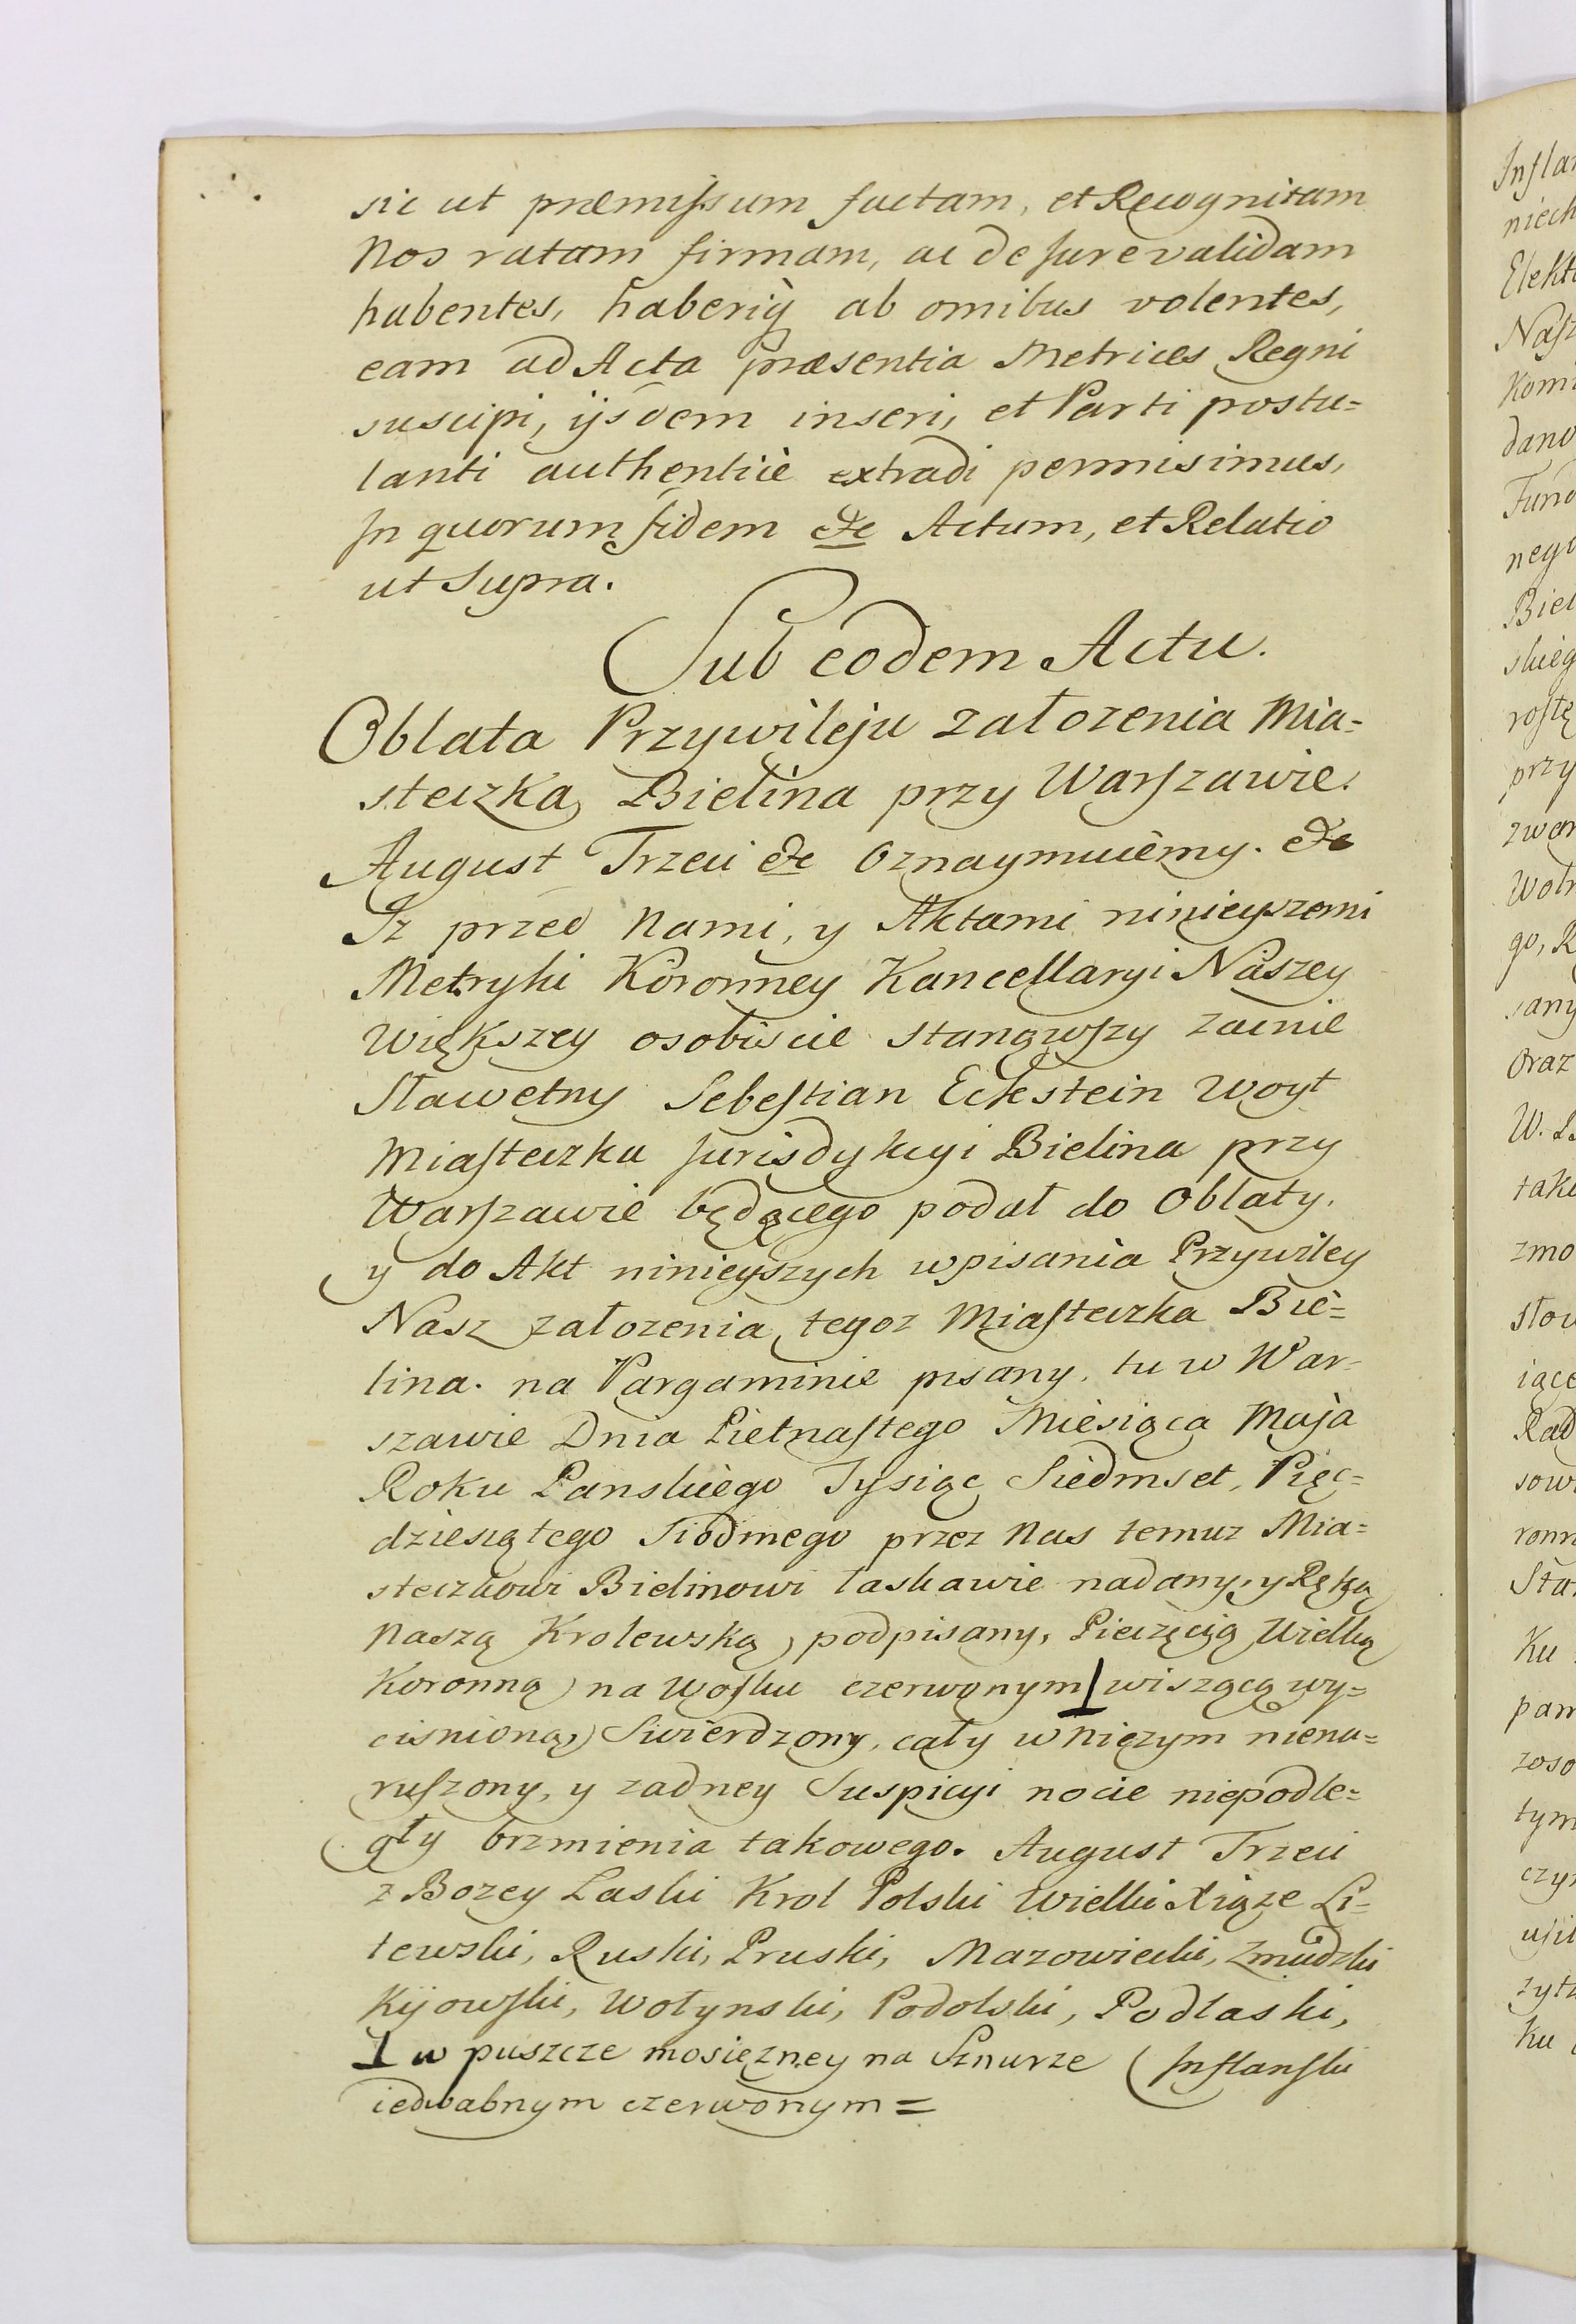 sic ut præmissum factam, et Recognitam
Nos ratam firmam, ac de Jure validam
habentes, haberiq ab omibus volentes,
eam ad Acta præsentia Metrices Regni
suscipi, ijsdem inseri, et Parti postu=
lanti authenticè extradi permisimus,
In quorum fidem &c Actum, et Relatio
ut Supra.
Sub eodem Actu.
Oblata Przywileju założenia Mia=
steczka Bielina przy Warszawie.
August Trzeci &c Oznaymuiemy. &c
Iż przed Nami, y Aktami ninieyszemi
Metryki Koronney Kancellaryi Naszey
Większey osobiscie stanąwszy zacnie
Sławetny Sebestian Eckstein Woyt
Miasteczka Jurisdykcyi Bielina przy
Warszawie będącego podał do Oblaty.
y do Akt ninieyszych wpisania Przywiley
Nasz załozenia tegoz Miasteczka Bie=
lina. na Pargaminie pisany, tu w War-
szawie Dnia Piętnastego Miesiąca Maja
Roku Panskiego Tysiąc Siedmset, Pięc=
dziesiątego Siodmego przez Nas temuz Mia=
steczkowi Bielinowi łaskawie nadany, y Ręką
Naszą Krolewską, podpisany, Pieczęcią Wielką
Koronną na Wosku czerwonym ⊥ wiszącą wy=
cisnioną, Swierdzony, cały w niczym niena=
ruszony, y zadney Suspicyi nocie niepodle=
gły brzmienia takowego. August Trzeci
z Bozey Łaski Krol Polski Wielki Xiąze Li=
tewski, Ruski, Pruski, Mazowiecki, Zmudzki
Kijowski, Wołynski, Podolski, Podlaski,
⊥ w puszcze mosięzney na Sznurze (Inflanski
iedwabnym czerwonym =
Infla
niech
Elekt
Nasz
Komi
dano
Fund
nego
Biel
skieg
rostę
przy
zwan
Woln
go, R
sany
Oraz
W. L
take
zmo
słow
iące
Rad
sow
ronn
Sta
Ku
pam
zoso
tym
czyn
usil
zyt
Ku